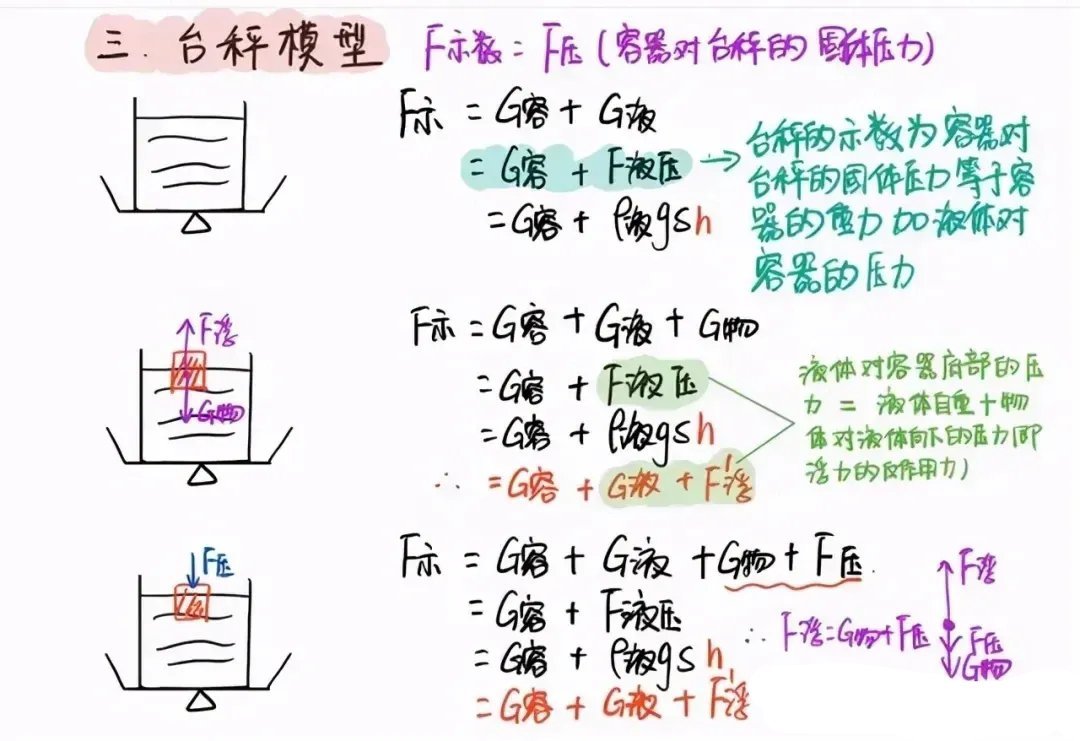 三.台秤模型 F示数=F压(容器对台秤的固体压力)
F示=G容+G液
=G容+F液压→台秤的示数为容器对
台秤的固体压力等于容
=G容+ρ液gsh
器的重力加液体对
容器的压力
F浮
G物
F示=G容+G液+G物
=G容+F液压
=G容+ρ液gsh
∴=G容+G液+F浮'
液体对容器底部的压
力=液体自重+物
体对液体向下的压力(即
浮力的反作用力)
F压
F示=G容+G液+G物+F压
=G容+F液压
=G容+ρ液gsh
=G容+G液+F浮'
∴F浮=G物+F压
F浮
F压
G物